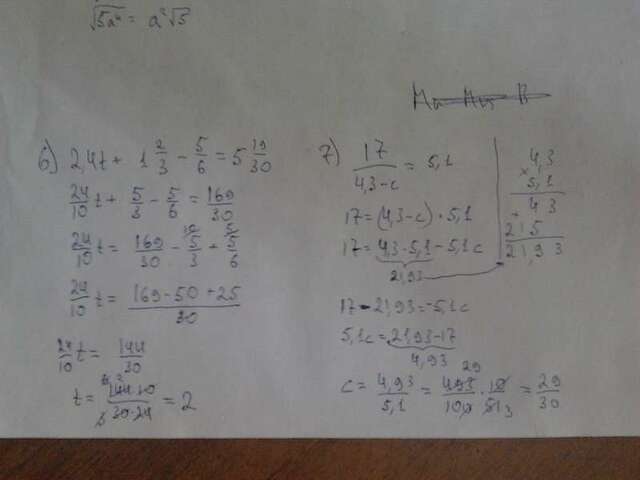 √5a⁴ = a²√5
6) 2,4t + 1 2/3 - 5/6 = 5 19/30
24/10 t + 5/3 - 5/6 = 169/30
24/10 t = 169/30 - 5/3 + 5/6
24/10 t = (169 - 50 + 25)/30
24/10 t = 144/30
t = (144·10)/(30·24) = 2
7) 17/(4,3-c) = 5,1
17 = (4,3-c)·5,1
17 = 4,3·5,1 - 5,1c
21,93
17 - 21,93 = -5,1c
5,1c = 21,93-17
4,93
c = 4,93/5,1 = 493/100 · 10/51 = 29/30
4,3
× 5,1
4 3
+ 215
21,93